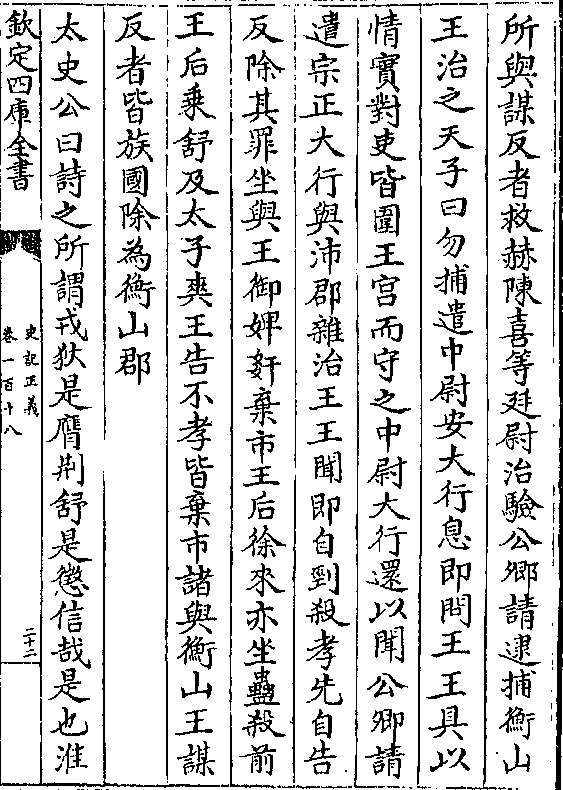 所與謀反者救赫陳喜等廷尉治驗公卿請逮捕衡山
王治之天子曰勿捕遣中尉安大行息即問王王具以
情實對吏皆圍王宫而守之中尉大行還以聞公卿請
遣宗正大行與沛郡雜治王王聞即自剄殺孝先自告
反除其罪坐與王御婢姧棄市王后徐來亦坐蠱殺前
王后乗舒及太子爽王告不孝皆棄市諸與衡山王謀
反者皆族國除為衡山郡
太史公曰詩之所謂戎狄是膺荆舒是懲信哉是也淮
欽定四庫全書
史記正義
卷一百十八
二十二